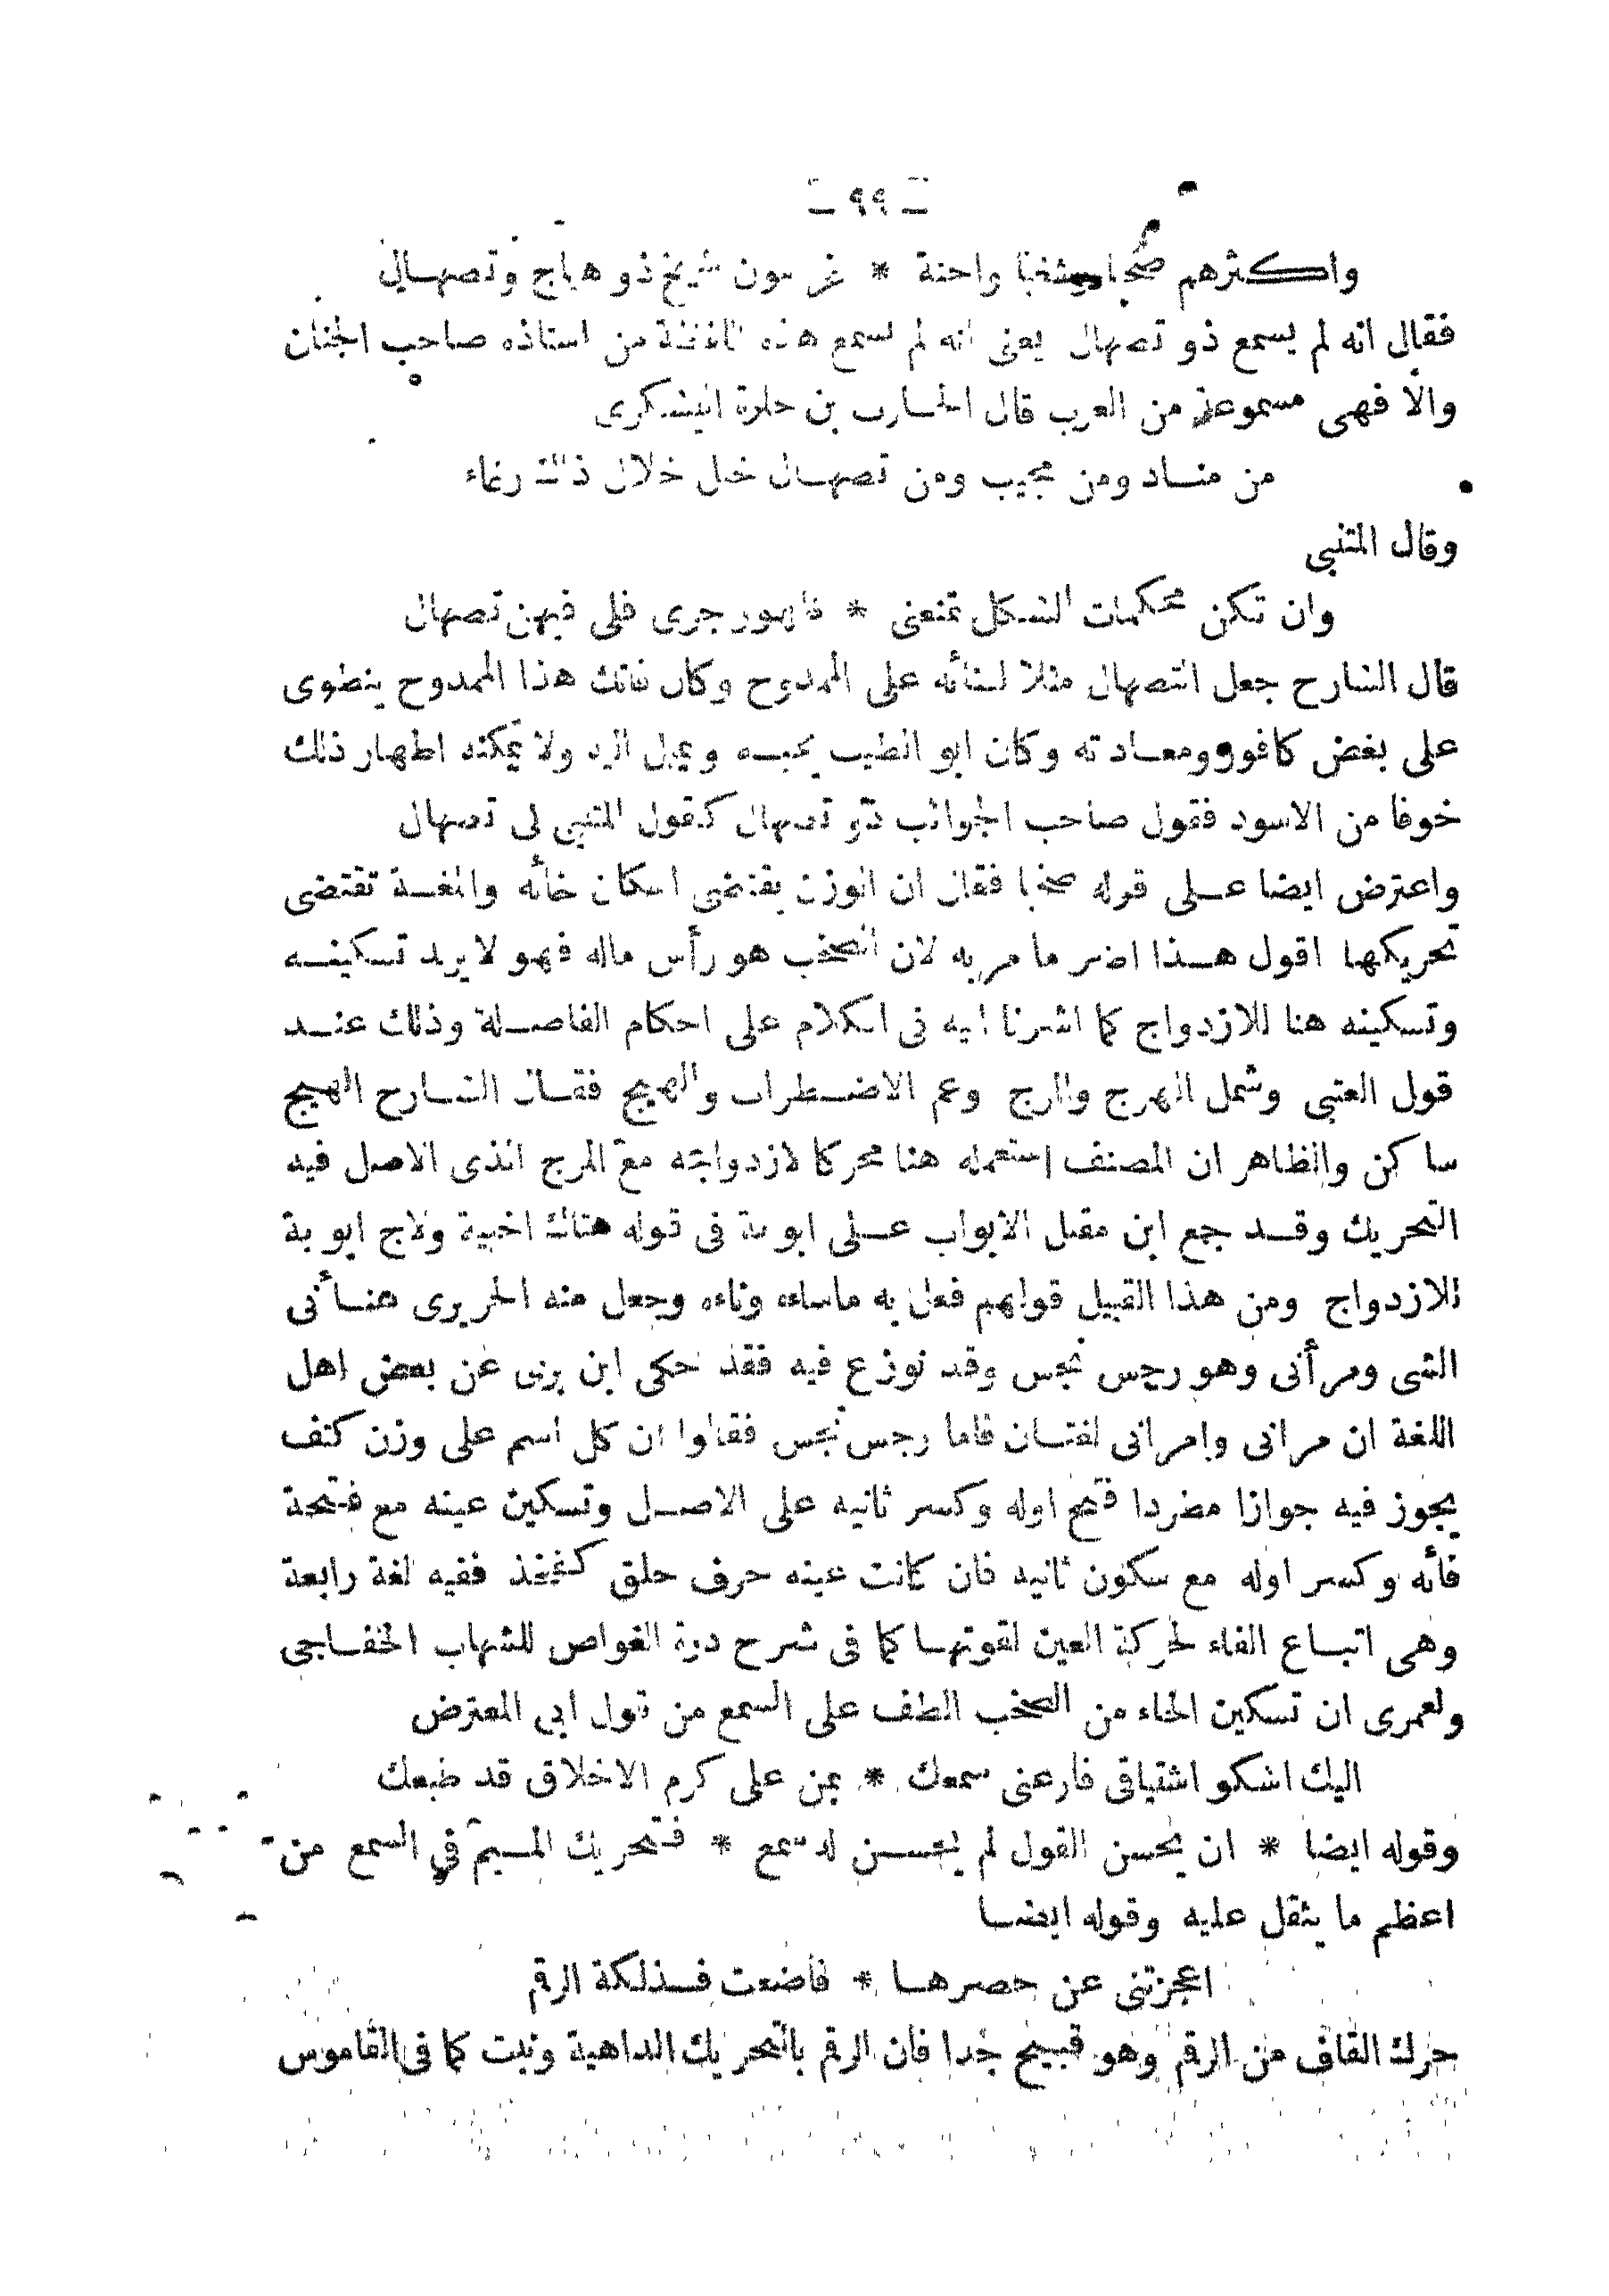 ـ ٩٩ ـ
واكثرهم صخبا وشغبا واحنة * غر سون شريخ ذو هياج وتصهال
فقال انه لم يسمع ذو تصهال يعنى انه لم يسمع هذه اللفظة من استاذه صاحب الجنان
والا فهى مسموعة من العرب قال الحارب بن حلزة اليشكرى
من مناد ومن مجيب ومن تصهال خيل خلال ذاك رغاء
وقال المتنبى
وان تكن محكمات الشكل تمنعنى * ظهور جرى فلى فيهن تصهال
قال الشارح جعل التصهال مثلا لثنائه على الممدوح وكان فاتك هذا الممدوح ينطوى
على بغض كافور ومعاداته وكان ابو الطيب يحبه ويميل اليه ولا يمكنه اظهار ذلك
خوفا من الاسود فقول صاحب الجوائب ذو تصهال كقول المتنبى لى تصهال
واعترض ايضا على قوله صخبا فقال ان الوزن يقتضى اسكان خائه واللغة تقتضى
تحريكها اقول هذا اضر ما مر به لان الصخب هو رأس ماله فهو لا يريد تسكينه
وتسكينه هنا للازدواج كما اشرنا اليه فى الكلام على احكام الفاصلة وذلك عند
قول العتبى وشمل الهرج والرج وعم الاضطراب والهيج فقال الشارح الهيج
ساكن والظاهر ان المصنف استعمله هنا محركا لازدواجه مع المرج الذى الاصل فيه
التحريك وقد جمع ابن مقبل الابواب على ابوبة فى قوله هتاك اخبية ولاج ابوبة
للازدواج ومن هذا القبيل قولهم فعل به ماساءه وناءه وجعل منه الحريرى هنأنى
الشى ومرأنى وهو رجس نجس وقد نوزع فيه فقد حكى ابن برى عن بعض اهل
اللغة ان مرانى وامرانى لغتان فاما رجس نجس فقالوا ان كل اسم على وزن كتف
يجوز فيه جوازا مطردا فتح اوله وكسر ثانيه على الاصل وتسكين عينه مع فتحة
فائه وكسر اوله مع سكون ثانيه فان كانت عينه حرف حلق كفخذ ففيه لغة رابعة
وهى اتباع الفاء لحركة العين لقوتها كما فى شرح درة الغواص للشهاب الخفاجى
ولعمرى ان تسكين الخاء من الصخب الطف على السمع من قول ابى المعترض
اليك اشكو اشتياقى فارعنى سمعك * بمن على كرم الاخلاق قد طبعك
وقوله ايضا * ان يحسن القول لم يحسن له سمع * فتحريك الميم فى السمع من
اعظم ما يثقل عليه وقوله ايضا
اعجزتنى عن حصرها * فاضعت فذلكة الرقم
حرك القاف من الرقم وهو قبيح جدا فان الرقم بالتحريك الداهية ونبت كما فى القاموس